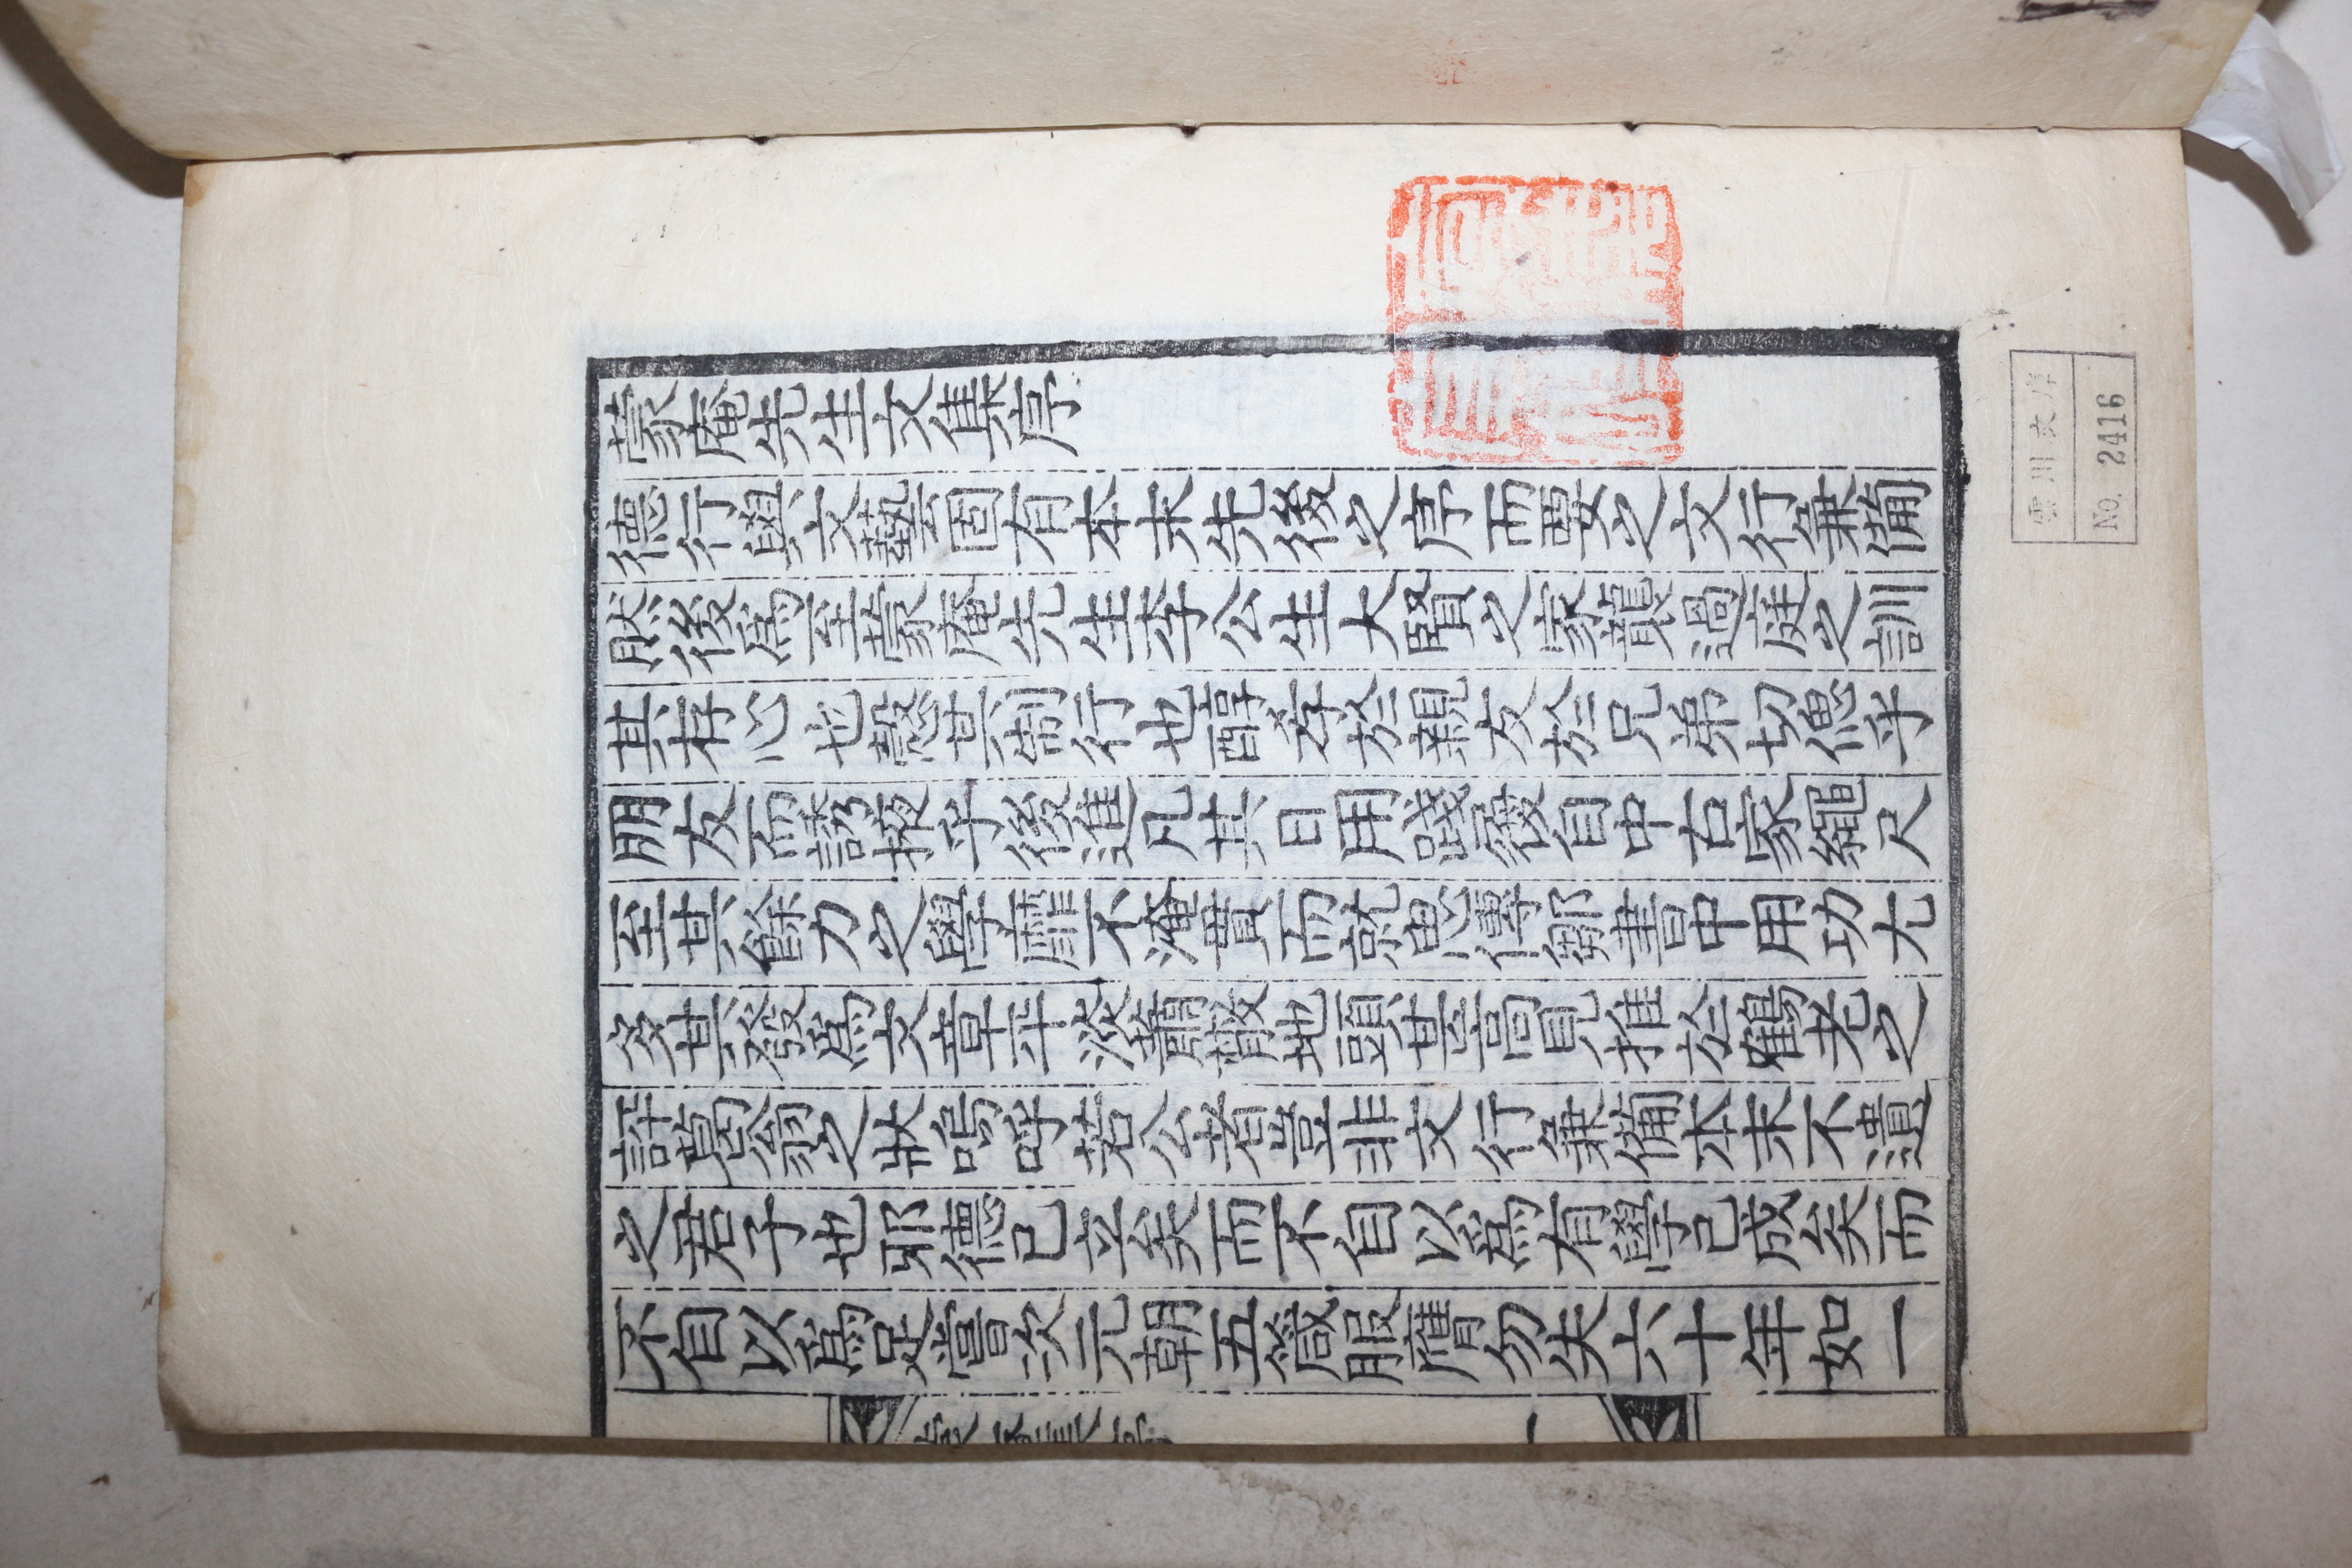 蒙庵先生文集序
德行與文藝固有本末先後之序而要之文行兼備
然後爲至蒙庵先生李公生大賢之家襲過庭之訓
其存心也慤其制行也醇孝於親友於兄弟切偲乎
朋友而誘掖乎後進凡其日用踐發自中古家繩尺
至其餘力之學靡不淹貫而就思傳鄒書中用功尤
多其發爲文章平淡䕺蔚地頭甚高見推於鶴老之
評蔿翁之狀嗚呼若公者豈非文行兼備本末不遺
之君子也耶德已立矣而不自以爲有學已成矣而
不自以爲足嘗次元朝五箴服膺勿失六十年如一
雲川文庫
No. 2416